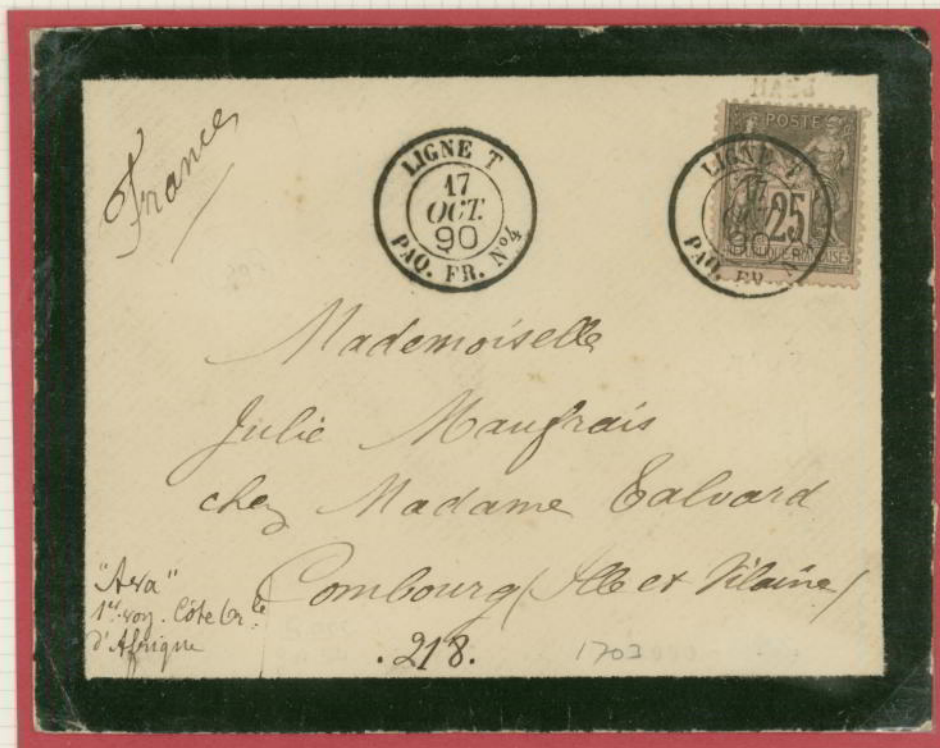 France
LIGNE T
17
OCT.
90
PAQ. FR. Nº4
POSTE
25
REPUBLIQUE FRANCAISE
LIGNE T
17
OCT
90
PAQ. FR. N
Mademoiselle
Julie Maufrais
chez Madame Talvard
Combourg (Ille et Vilaine)
"Ava"
1er voy. Côte Orle
d'Afrique
.218.
1703